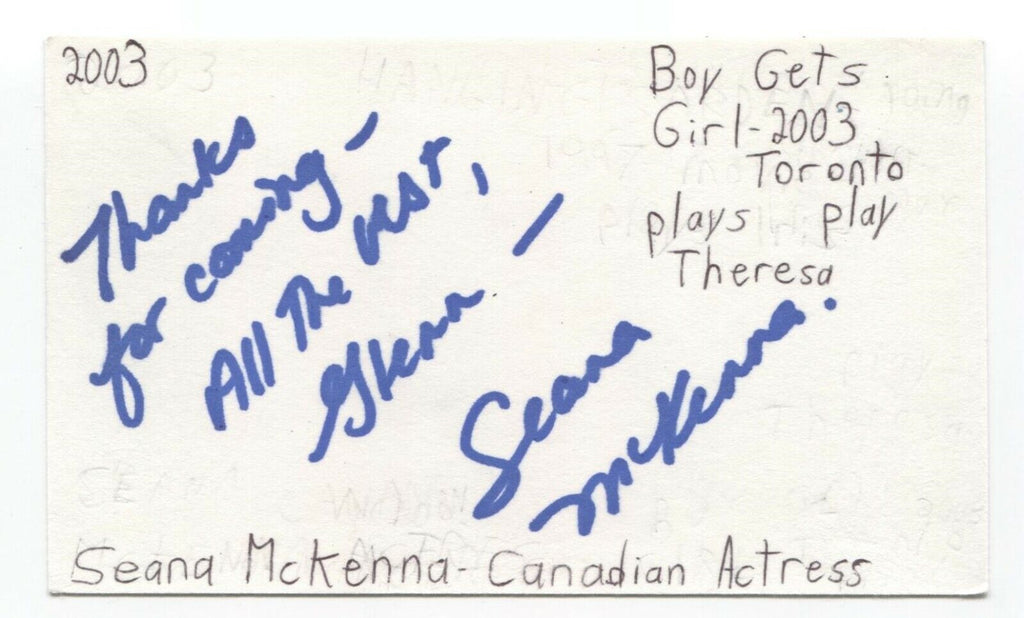 2003
Boy Gets
Girl-2003
Toronto
plays play
Theresa
Thanks
for coming-
All The best,
Glenn -
Seana
McKenna.
Seana McKenna- Canadian Actress